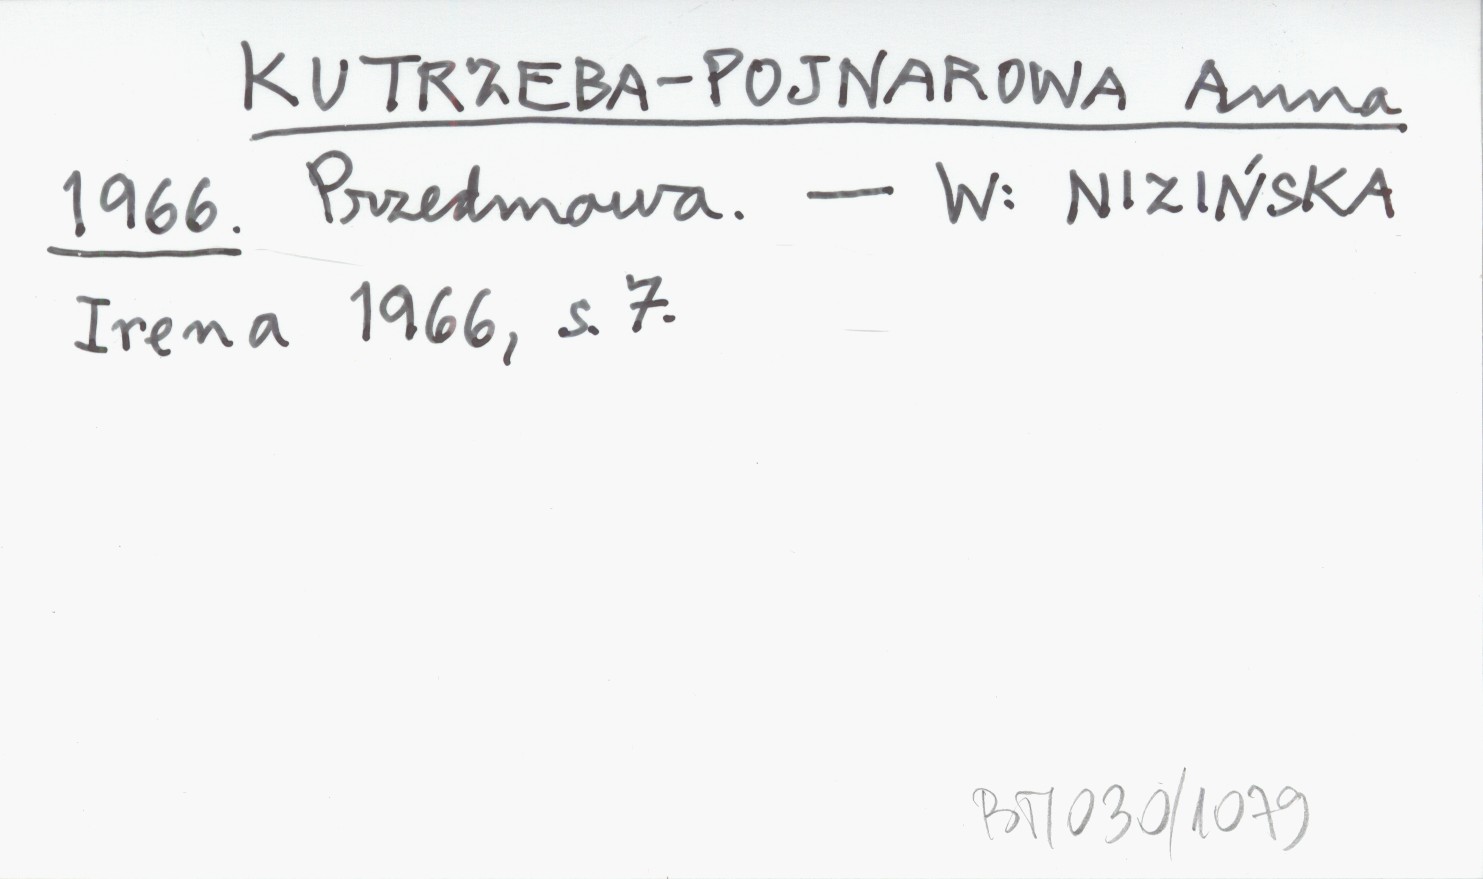 KUTRZEBA-POJNAROWA Anna
1966. Przedmowa. — W: NIZIŃSKA
Irena 1966, s. 7.
030/1079